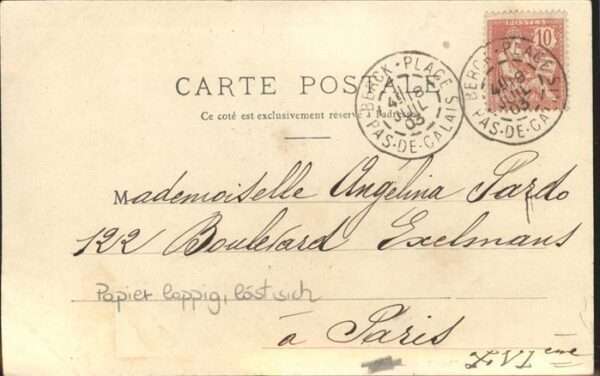 POSTES
10
CARTE POSTALE
Ce côté est exclusivement réservé à l'adresse
BERCK-PLAGE
8
JUIL
03
PAS-DE-CALAIS
BERCK-PLAGE
8
JUIL
03
PAS-DE-CALAIS
Mademoiselle Angélina Pardo
122 Boulevard Exelmans
Papier lappig,
à Paris
XVI ème